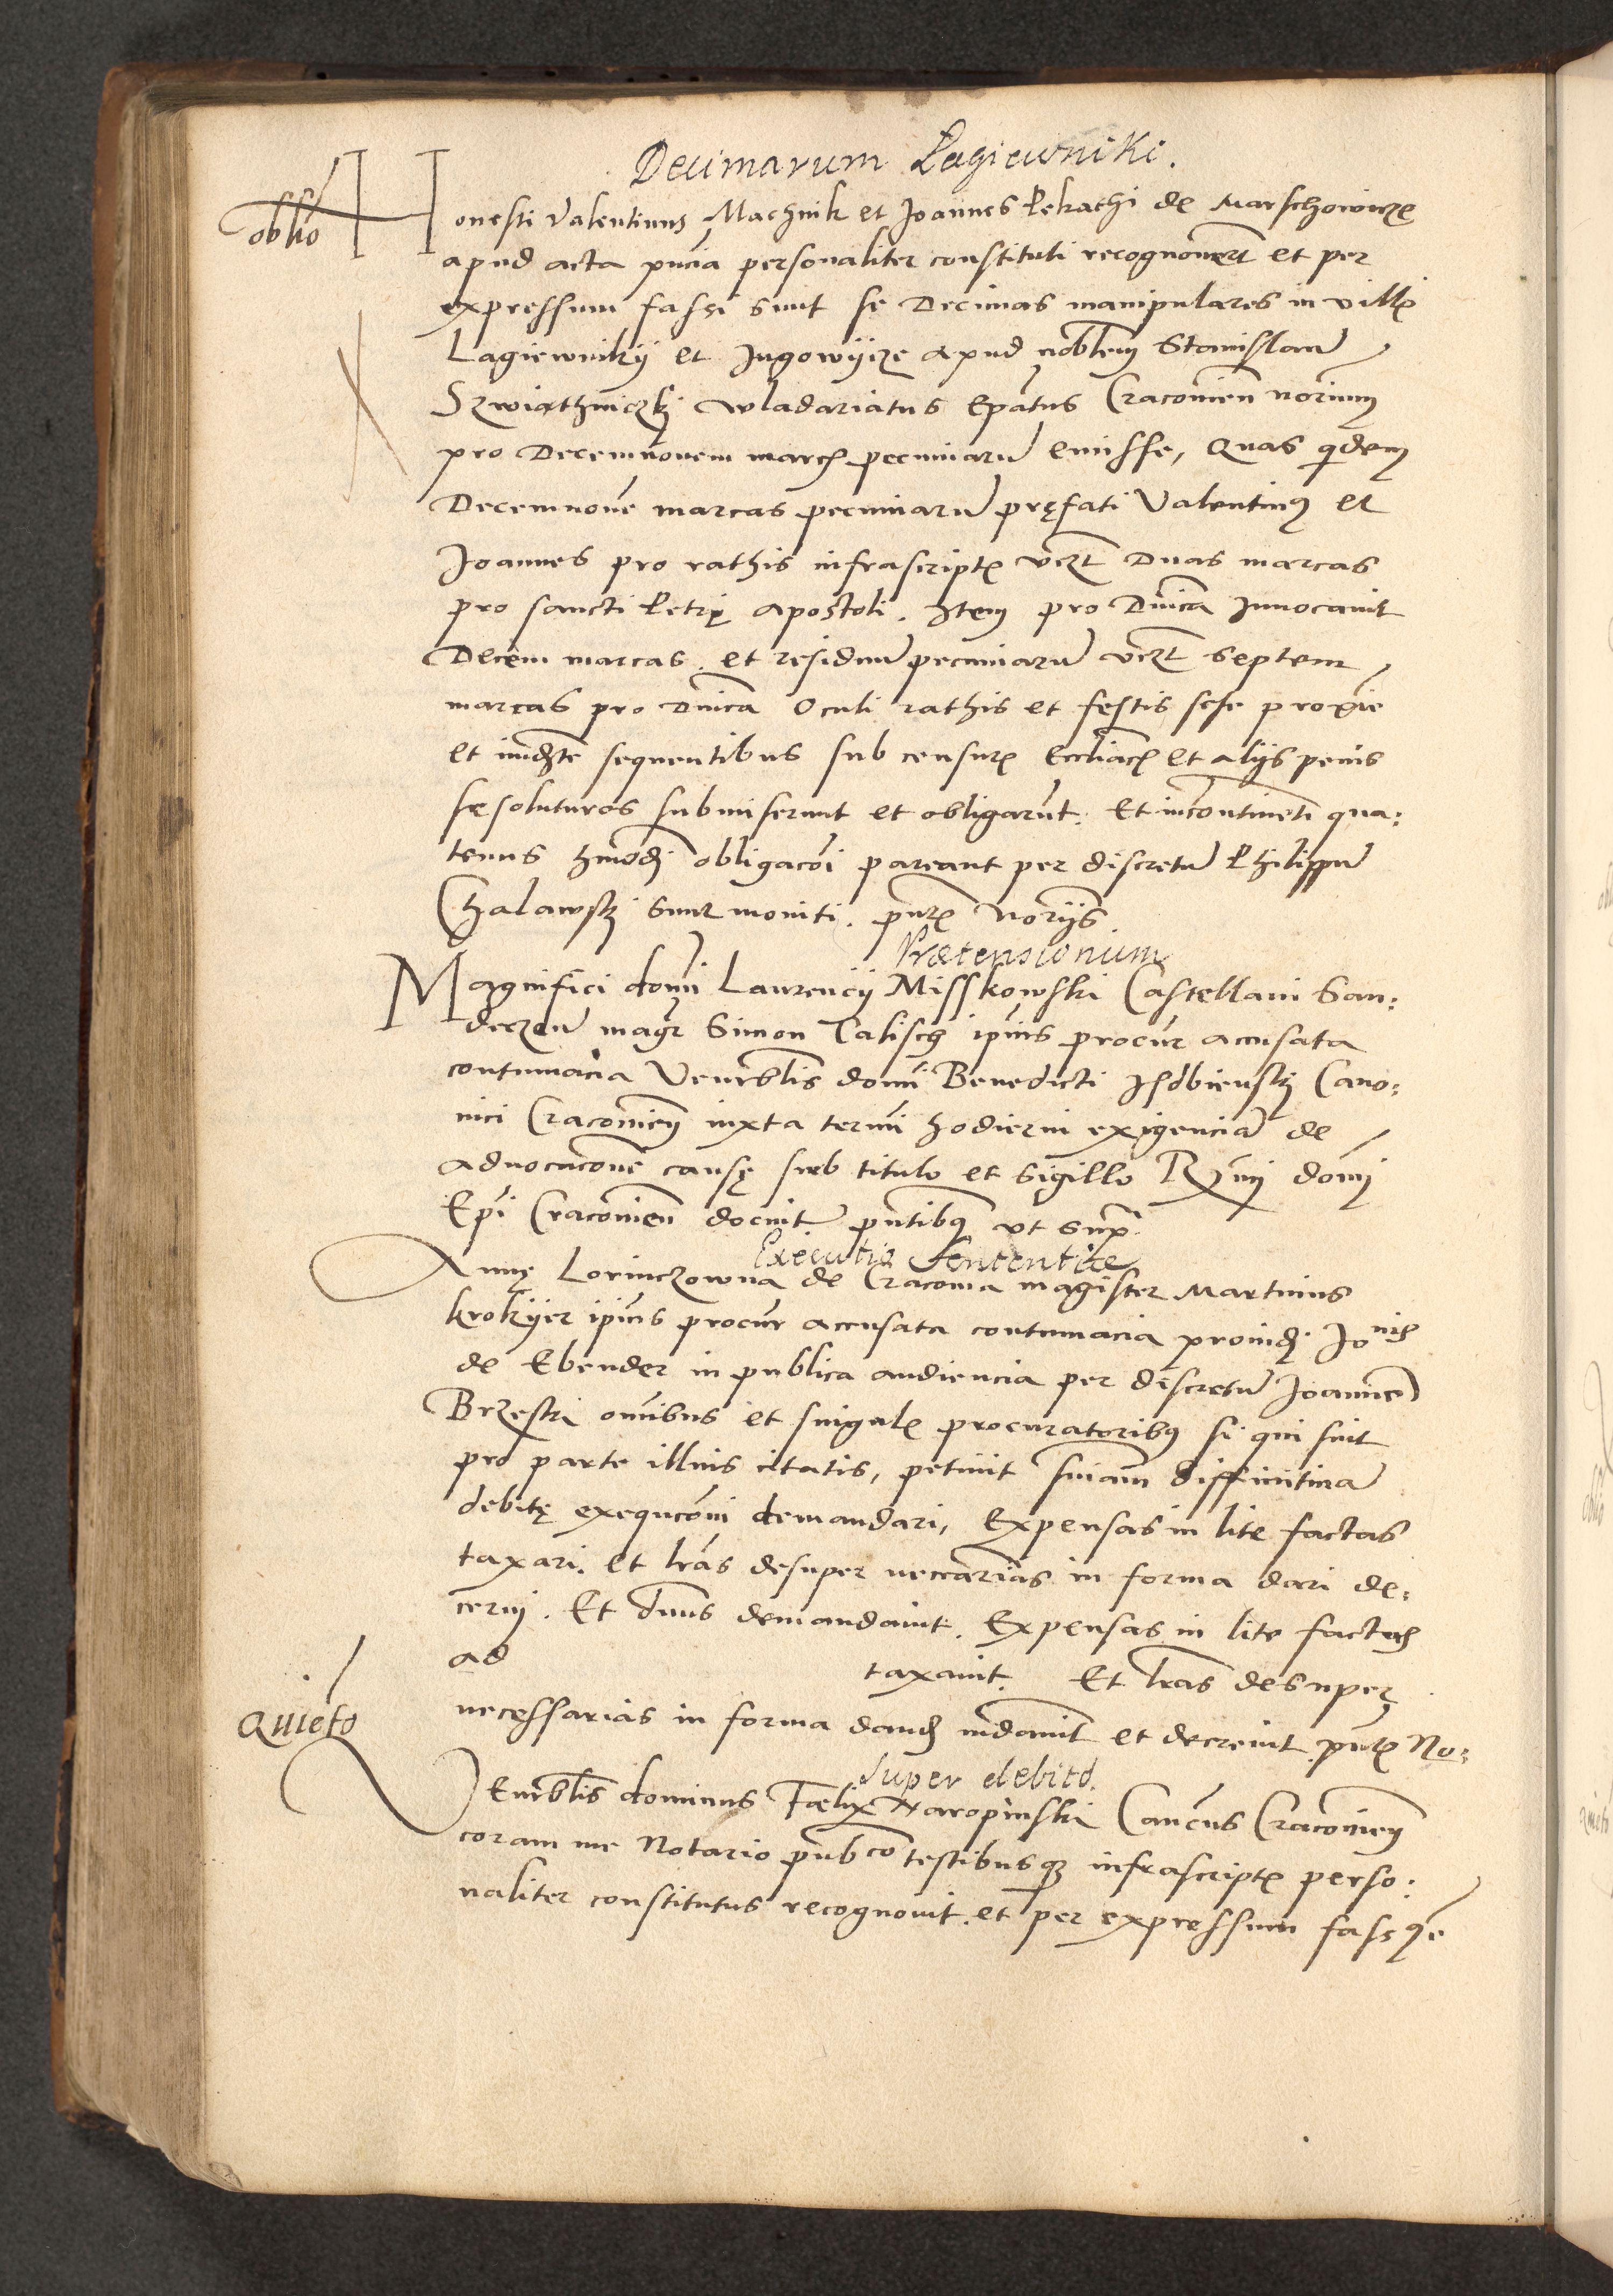 Decimarum Łagiewniki.
oblio
Honesti Valentinus Machnik et Joannes Pekathi de Marschowicze
apud acta pncia personaliter constituti recognouert et per
expressum fassi sunt se Decimas manipulares in villis
Lagiewniky et Jugowycze apud noblem Stanislaum
Szwiathniczki wladariatus Epatus Cracouien
pro Decemnouem marcis pecuniaru emisse, Quas qdem
Decemnoue marcas pecuniaru pręfati Valentinus et
Joannes pro rathis infrascriptis vczt Duas marcas
pro sancti Petri apostoli. Item pro Dnica Inuocauit
Decem marcas. et residuu pecuniaru vczt septem
marcas pro Dnica Oculi rathis et festis sese proxie
et immediate sequentibus sub censuris Eccliacis et alijs penis
se soluturos submiserunt et obligarut. Et incontineti qua:
tenus hmodi obligacoi pareant per discretu Philippu
Chalawski sunt moniti. pntibus Norijs
Prætensionum
Magnifici domi Laurencij Misskowski Castellani San:
deczen magr Simon Talisch ipius procur accusata
contumacia Venerblis domi Benedicti Isdbienski Cano:
nici Cracouien iuxta termi hodierni exigencia de
aduocacone causę sub titulo et sigillo Rmi domi
Epi Cracouien docuit pntibus vt supra
Executio Sententiæ
Annę Lorinczowna de Cracouia magister Martinus
krokyer ipius procur accusata contumacia prouidi Jonis
de Ebender in publica audiencia per discretu Joannem
Brzeski omibus et singulis procuratoribus si qui sint
pro parte illius citatis, petiuit sniam diffinitiua
debitę exequconi demandari, Expensas in lite factas
taxari. et lras desuper neccarias in forma dari de:
cerni. Et dnus demandauit. Expensas in lite factas
ad taxauit. Et lras desuper
necessarias in forma dandas mdauit et decreuit pntibus No:
Quieto
super debito.
Venerblis dominus Fælix Naropinski Cancus Cracouien
coram me Notario pubco testibusque infrascriptis perso:
naliter constitutus recognouit. et per expressum fassus e